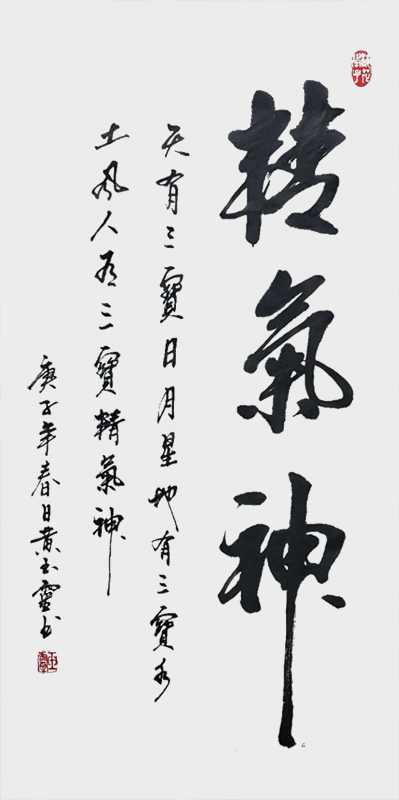 精氣神
天有三寶日月星地有三寶水
土風人有三寶精氣神
庚子年春日黄玉靈书